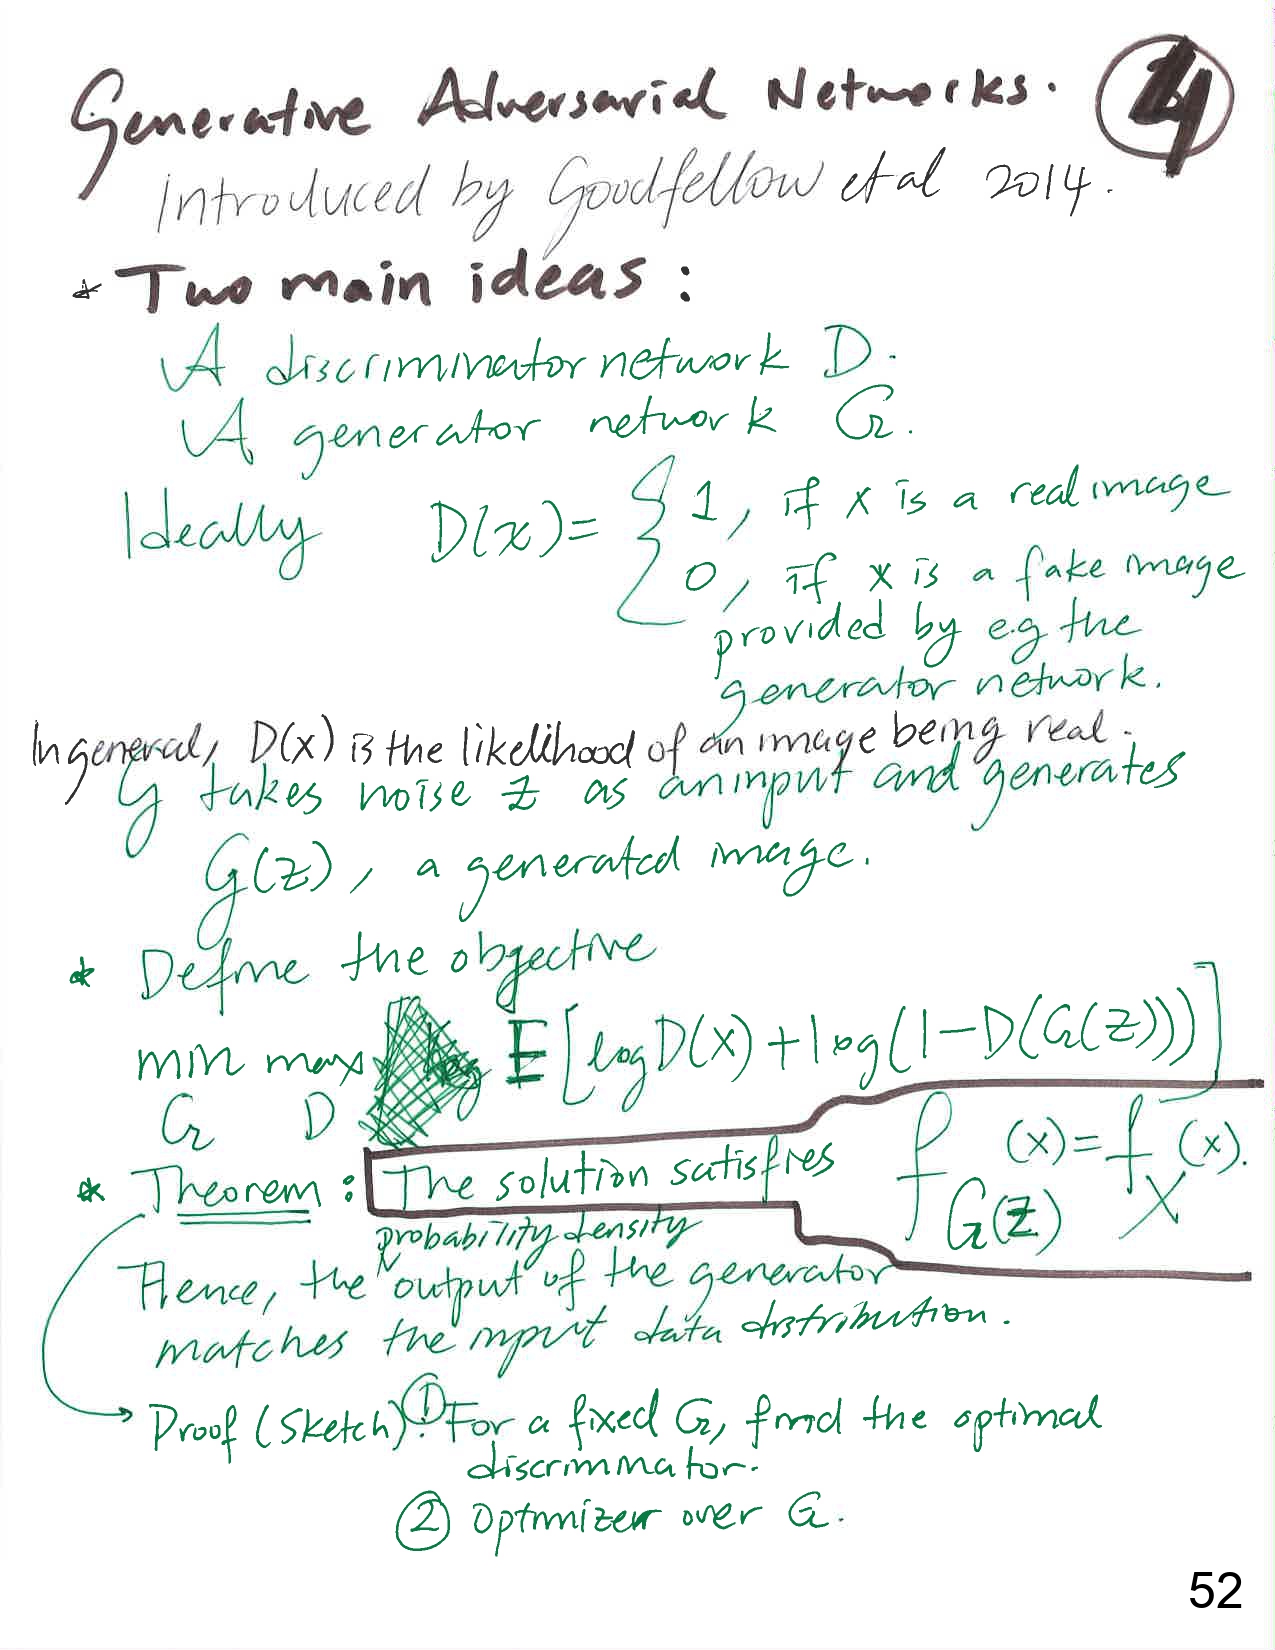 Generative Adversarial Networks.
Introduced by Goodfellow et al 2014.
* Two main ideas :
A discriminator network D.
A generator network G.
Ideally D(x)= { 1, if x is a real image
0, if x is a fake image
provided by e.g the
generator network.
In general, D(x) is the likelihood of an image being real.
G takes noise z as an input and generates
G(z), a generated image.
* Define the objective
min max E [log D(x) + log(1-D(G(z)))]
G D
* Theorem : The solution satisfies f_G(z) (x) = f_X (x).
probability density
Hence, the output of the generator
matches the input data distribution.
Proof (Sketch): ① For a fixed G, find the optimal
discriminator.
② Optimizer over G.
52